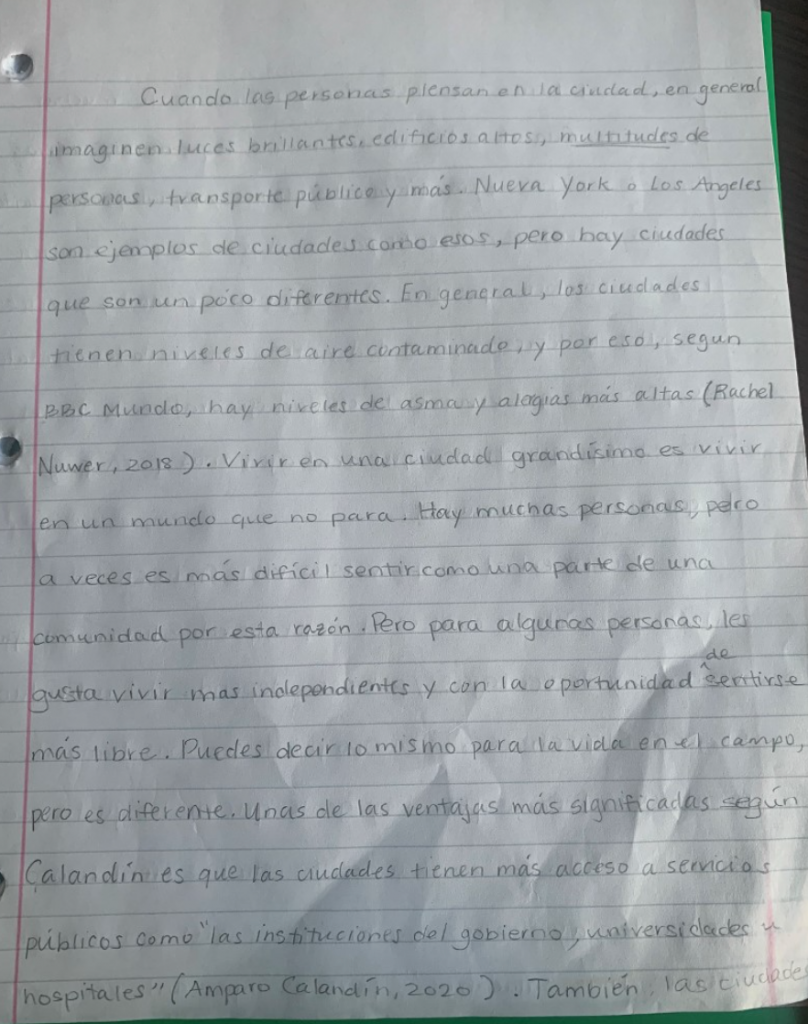 Cuando las personas piensan en la ciudad, en general
imaginen luces brillantes, edificios altos, multitudes de
personas, transporte público y más. Nueva York o Los Angeles
son ejemplos de ciudades como esos, pero hay ciudades
que son un poco diferentes. En general, los ciudades
tienen niveles de aire contaminado, y por eso, segun
BBC Mundo, hay niveles de asma y alegias más altas (Rachel
Nuwer, 2018). Vivir en una ciudad grandísima es vivir
en un mundo que no para. Hay muchas personas, pero
a veces es más difícil sentir como una parte de una
comunidad por esta razón. Pero para algunas personas, les
gusta vivir mas independientes y con la oportunidad de sentirse
más libre. Puedes decir lo mismo para la vida en el campo,
pero es diferente. Unas de las ventajas más significadas según
Calandín es que las ciudades tienen más acceso a servicios
públicos como "las instituciones del gobierno, universidades y
hospitales" (Amparo Calandín, 2020). También, las ciudades